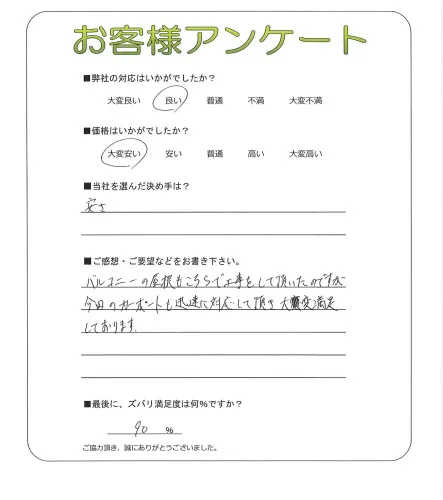 お客様アンケート
■弊社の対応はいかがでしたか?
大変良い 良い 普通 不満 大変不満
■価格はいかがでしたか?
大変安い 安い 普通 高い 大変高い
■当社を選んだ決め手は?
安さ
■ご感想・ご要望などをお書き下さい。
バルコニーの屋根もこちらで工事をして頂いたのですが
今回のカーポートも迅速に対応して頂き大変満足
しております。
■最後に、ズバリ満足度は何%ですか?
90 %
ご協力頂き、誠にありがとうございました。